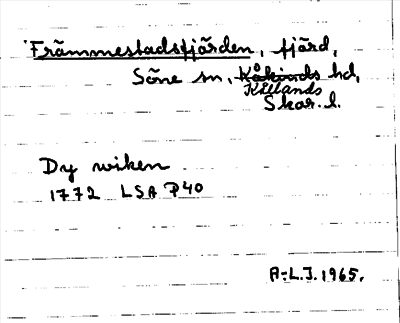 Främmestadsfjärden, fjärd,
Såne sn, Kåkinds hd,
Kållands
Skar. l.
Dy wiken
1772 LSA P40
A-L.J. 1965.